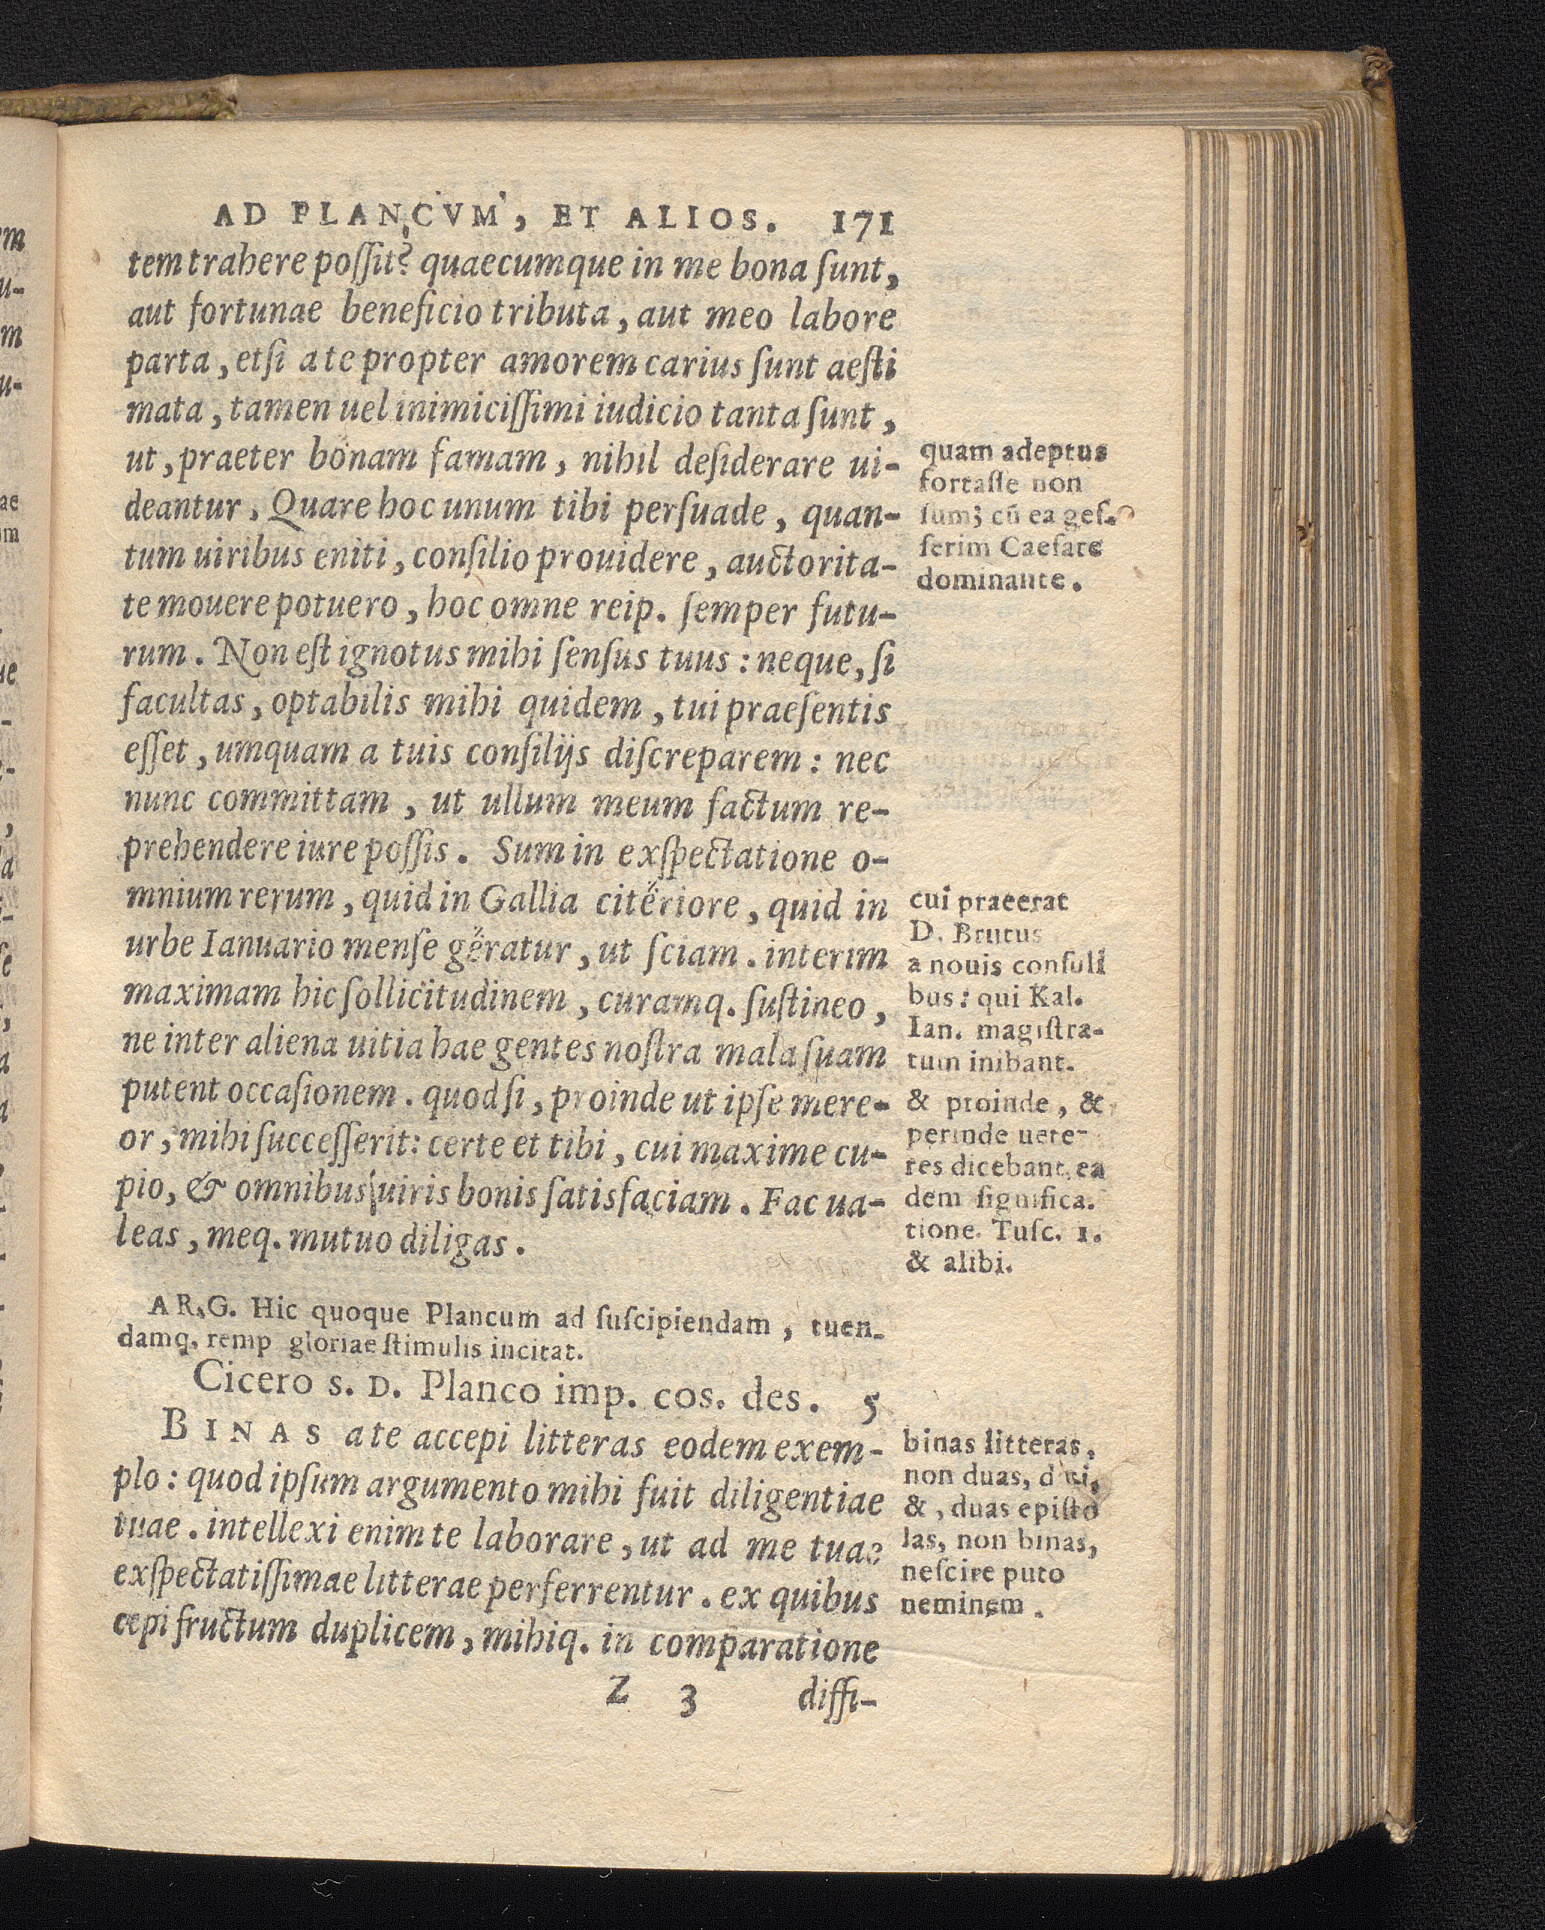 AD PLANCVM, ET ALIOS. 171
tem trahere poſſit? quaecumque in me bona ſunt,
aut fortunae beneficio tributa, aut meo labore
parta, etſi a te propter amorem carius ſunt aeſti
mata, tamen uel inimiciſſimi iudicio tanta ſunt,
ut, praeter bonam famam, nihil deſiderare ui-
deantur. Quare hoc unum tibi perſuade, quan-
tum uiribus eniti, conſilio prouidere, auctorita-
te mouere potuero, hoc omne reip. ſemper futu-
rum. Non eſt ignotus mihi ſenſus tuus: neque, ſi
facultas, optabilis mihi quidem, tui praeſentis
eſſet, umquam a tuis conſilijs diſcreparem: nec
nunc committam, ut ullum meum factum re-
prehendere iure poſſis. Sum in exſpectatione o-
mnium rerum, quid in Gallia citeriore, quid in
urbe Ianuario menſe geratur, ut ſciam. interim
maximam hic ſollicitudinem, curamq. ſuſtineo,
ne inter aliena uitia hae gentes noſtra mala ſuam
putent occaſionem. quod ſi, proinde ut ipſe mere-
or, mihi ſucceſſerit: certe et tibi, cui maxime cu-
pio, & omnibus uiris bonis ſatisfaciam. Fac ua-
leas, meq. mutuo diligas.
quam adeptus
fortaſſe non
ſum; cū ea geſ-
ſerim Caeſare
dominante.
cui praeerat
D. Brutus
a nouis conſuli
bus: qui Kal.
Ian. magiſtra-
tum inibant.
& proinde, &
perinde uete-
res dicebant, ea
dem ſignifica.
tione. Tuſc. 1.
& alibi.
ARG. Hic quoque Plancum ad ſuſcipiendam, tuen-
damq. remp gloriae ſtimulis incitat.
Cicero s. D. Planco imp. cos. des. 5
BINAS a te accepi litteras eodem exem-
plo: quod ipſum argumento mihi fuit diligentiae
tuae. intellexi enim te laborare, ut ad me tuae
exſpectatiſſimae litterae perferrentur. ex quibus
cepi fructum duplicem, mihiq. in comparatione
binas litteras,
non duas, dici,
&, duas epiſto
las, non binas,
neſcire puto
neminem.
Z 3 diffi-